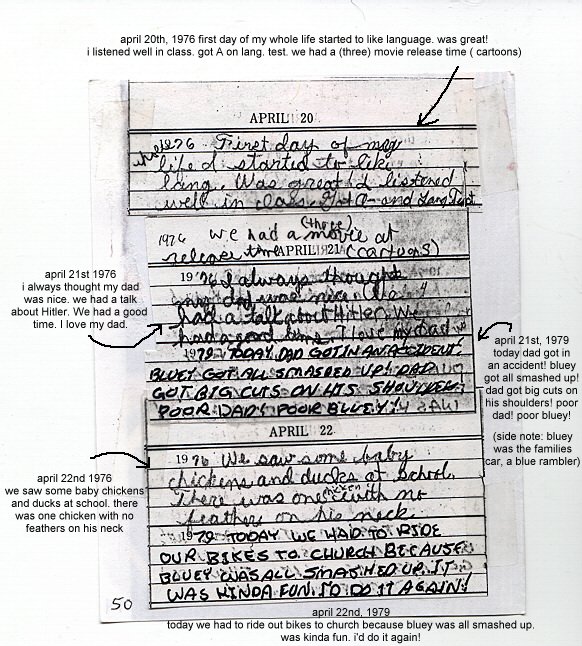 april 20th, 1976 first day of my whole life started to like language. was great!
i listened well in class. got A on lang. test. we had a (three) movie release time ( cartoons)
APRIL 20
1976 First day of my
whole
life I started to like
lang. Was great! I listened
well in class. Got A- and Lang Test
(three)
1976 we had a movie at
release time (cartoons)
APRIL 21
1976 I always thought
my dad was nice. We
had a talk about Hitler. We
had a good time. I love my dad
1979 TODAY DAD GOT IN AN ACCIDENT!
BLUEY GOT ALL SMASHED UP! DAD
GOT BIG CUTS ON HIS SHOULDERS!
POOR DAD! POOR BLUEY!
april 21st 1976
i always thought my dad
was nice. we had a talk
about Hitler. We had a good
time. I love my dad.
april 21st, 1979
today dad got in
an accident! bluey
got all smashed up!
dad got big cuts on
his shoulders! poor
dad! poor bluey!
(side note: bluey
was the families
car, a blue rambler)
APRIL 22
1976 We saw some baby
chickens and ducks at school.
There was one chicken with no
feather on his neck
1979 TODAY WE HAD TO RIDE
OUR BIKES TO CHURCH BECAUSE
BLUEY WAS ALL SMASHED UP. IT
WAS KINDA FUN. I'D DO IT AGAIN!
april 22nd 1976
we saw some baby chickens
and ducks at school. there
was one chicken with no
feathers on his neck
50
april 22nd, 1979
today we had to ride out bikes to church because bluey was all smashed up.
was kinda fun. i'd do it again!